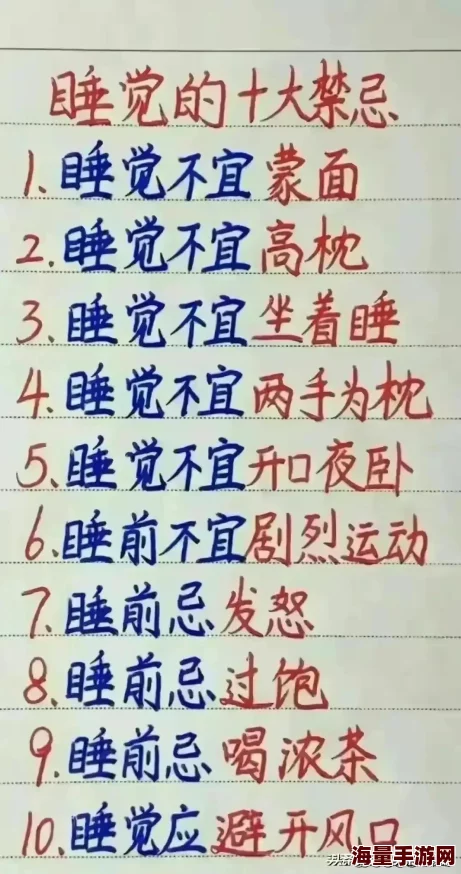 睡觉的十大禁忌
1.睡觉不宜蒙面
2.睡觉不宜高枕
3.睡觉不宜坐着睡
4.睡觉不宜两手为枕
5.睡觉不宜开口夜卧
6.睡前不宜剧烈运动
7.睡前忌发怒
8.睡前忌过饱
9.睡前忌喝浓茶
10.睡觉应避开风口
海量手游网